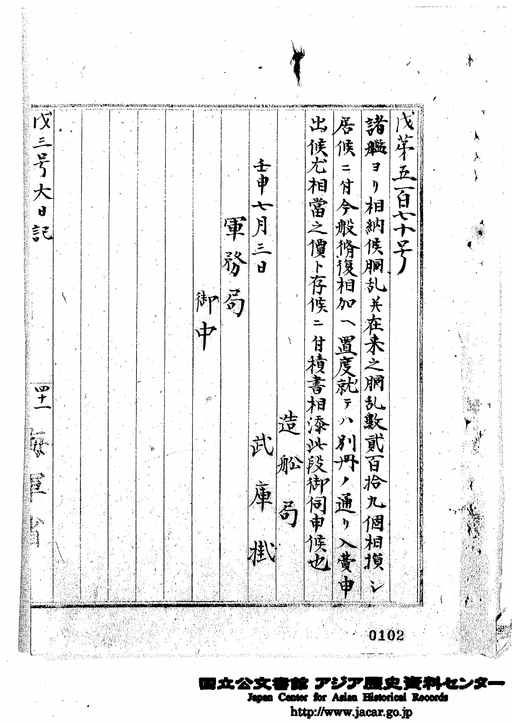 戊第五百七十号
諸艦ヨリ相納候胴乱并在来之胴乱数貳百拾九個相損シ
居候ニ付今般脩復相加ヘ置度就テハ別冊ノ通リ入費申
出候尤相當之價ト存候ニ付積書相添此段御伺申候也
造船局
武庫掛
壬申七月三日
軍務局
御中
戊三号大日記
四十一
海軍省
0102
国立公文書館 アジア歴史資料センター
Japan Center for Asian Historical Records
http://www.jacar.go.jp